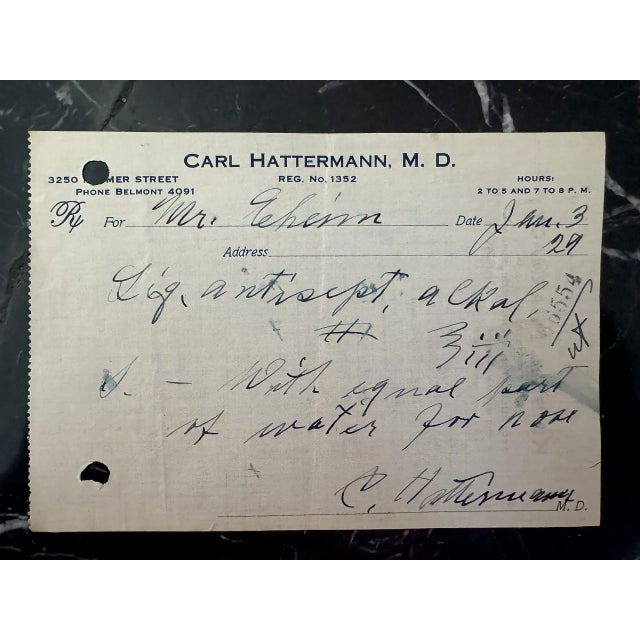 CARL HATTERMANN, M. D.
3250 MER STREET
REG. NO. 1352
HOURS:
PHONE BELMONT 4091
2 TO 5 AND 7 TO 8 P. M.
℞ For Mr. Eheim Date Jan. 3
Address 29
Liq. antisept, alkal,
ʒiii
S. — With equal part
of water for nose
C. Hattermann
M. D.